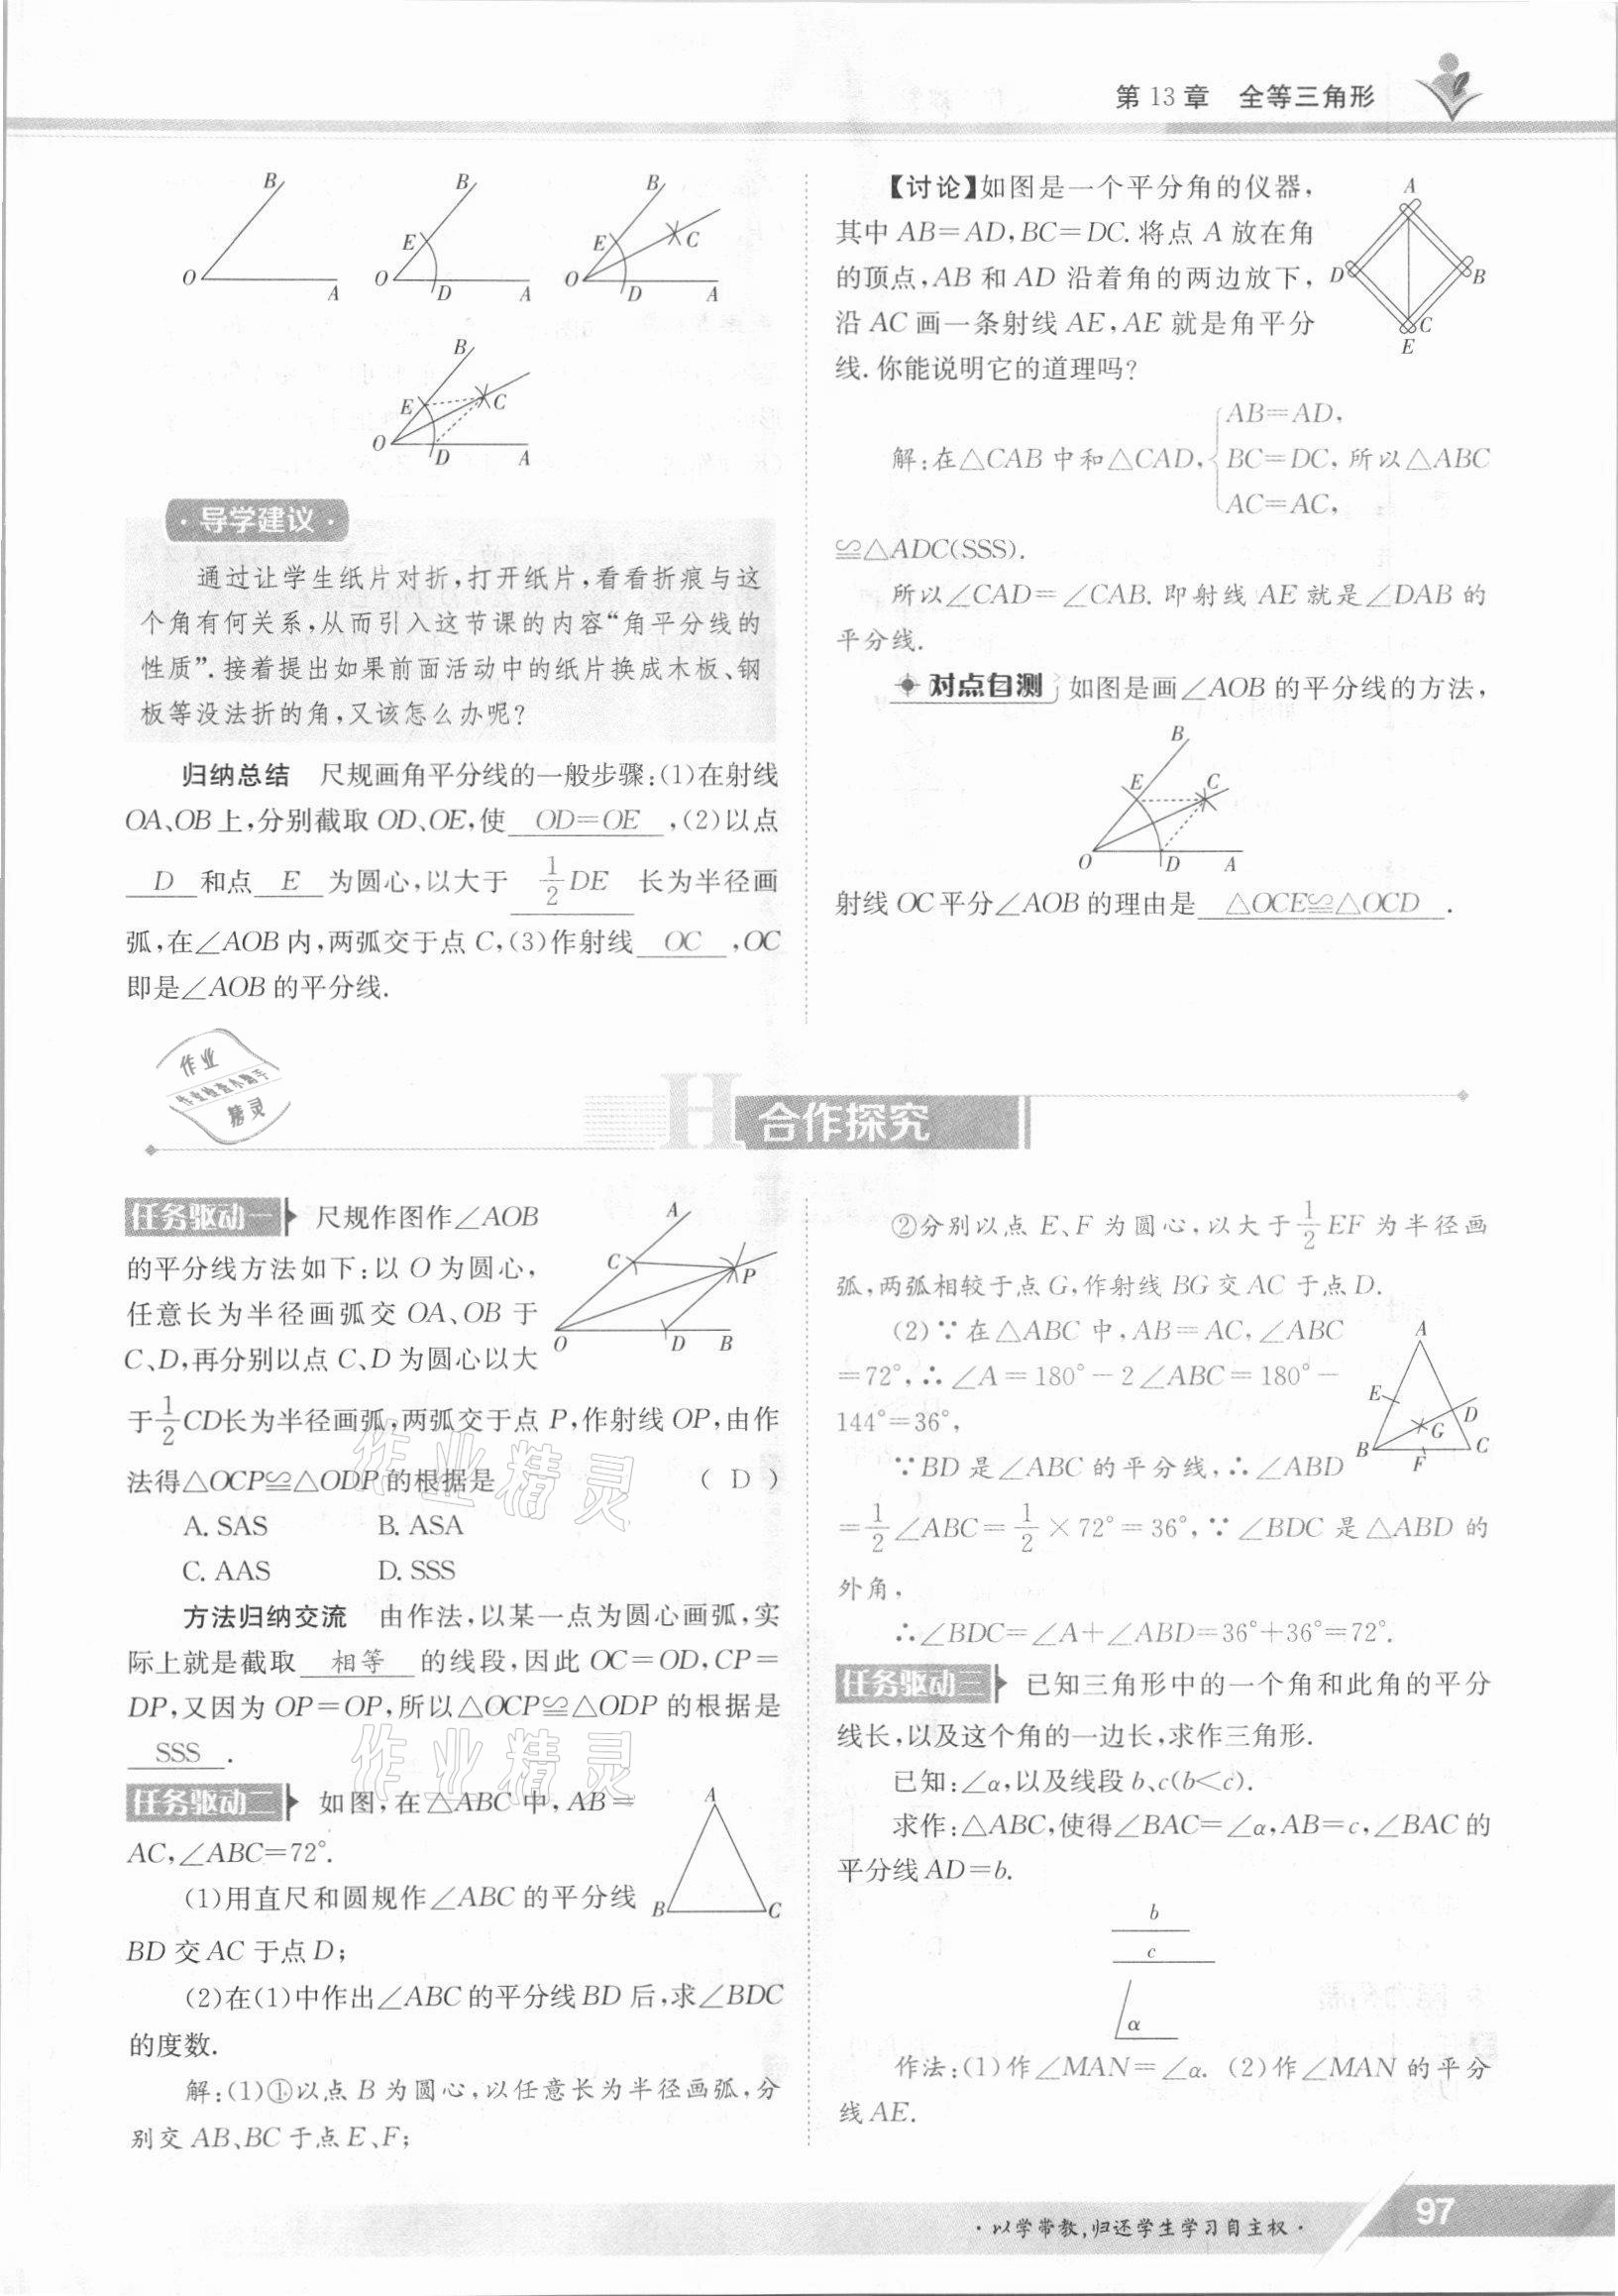 第 13 章 全等三角形
B O A
B E O D A
B E C O D A
B E C O D A
· 导学建议 ·
通过让学生纸片对折,打开纸片,看看折痕与这
个角有何关系,从而引入这节课的内容“角平分线的
性质”.接着提出如果前面活动中的纸片换成木板、钢
板等没法折的角,又该怎么办呢?
归纳总结 尺规画角平分线的一般步骤:(1)在射线
OA、OB上,分别截取 OD、OE,使 OD=OE ,(2)以点
D 和点 E 为圆心,以大于 1/2 DE 长为半径画
弧,在∠AOB 内,两弧交于点 C,(3)作射线 OC ,OC
即是∠AOB 的平分线.
【讨论】如图是一个平分角的仪器,
其中 AB=AD,BC=DC.将点 A 放在角
的顶点,AB 和 AD 沿着角的两边放下,
沿 AC 画一条射线 AE,AE 就是角平分
线.你能说明它的道理吗?
A D B C E
解:在△CAB 中和△CAD, { AB=AD, BC=DC, AC=AC, 所以△ABC
≌△ADC(SSS).
所以∠CAD=∠CAB. 即射线 AE 就是∠DAB 的
平分线.
对点自测 如图是画∠AOB 的平分线的方法,
B E C O D A
射线 OC 平分∠AOB 的理由是 △OCE≌△OCD .
作业
作业检查小助手
精灵
H 合作探究
任务驱动一 尺规作图作∠AOB
的平分线方法如下:以 O 为圆心,
任意长为半径画弧交 OA、OB 于
C、D,再分别以点 C、D 为圆心以大
于 1/2 CD长为半径画弧,两弧交于点 P,作射线 OP,由作
法得△OCP≌△ODP 的根据是 ( D )
A C P O D B
A. SAS B. ASA
C. AAS D. SSS
方法归纳交流 由作法,以某一点为圆心画弧,实
际上就是截取 相等 的线段,因此 OC=OD,CP=
DP,又因为 OP=OP,所以△OCP≌△ODP 的根据是
SSS .
作业精灵
作业精灵
任务驱动二 如图,在△ABC 中,AB=
AC,∠ABC=72°.
(1)用直尺和圆规作∠ABC 的平分线
BD 交 AC 于点 D;
A B C
(2)在(1)中作出∠ABC 的平分线 BD 后,求∠BDC
的度数.
解:(1)①以点 B 为圆心,以任意长为半径画弧,分
别交 AB、BC 于点 E、F;
②分别以点 E、F 为圆心,以大于 1/2 EF 为半径画
弧,两弧相较于点 G,作射线 BG 交 AC 于点 D.
(2)∵在△ABC 中,AB=AC,∠ABC
=72°,∴∠A=180°-2∠ABC=180°-
144°=36°,
∵BD 是∠ABC 的平分线,∴∠ABD
A E D G B F C
=1/2∠ABC=1/2×72°=36°,∵∠BDC 是△ABD 的
外角,
∴∠BDC=∠A+∠ABD=36°+36°=72°.
任务驱动三 已知三角形中的一个角和此角的平分
线长,以及这个角的一边长,求作三角形.
已知:∠α,以及线段 b、c(b<c).
求作:△ABC,使得∠BAC=∠α,AB=c,∠BAC 的
平分线 AD=b.
b
c
α
作法:(1)作∠MAN=∠α. (2)作∠MAN 的平分
线 AE.
· 以学带教,归还学生学习自主权 ·
97